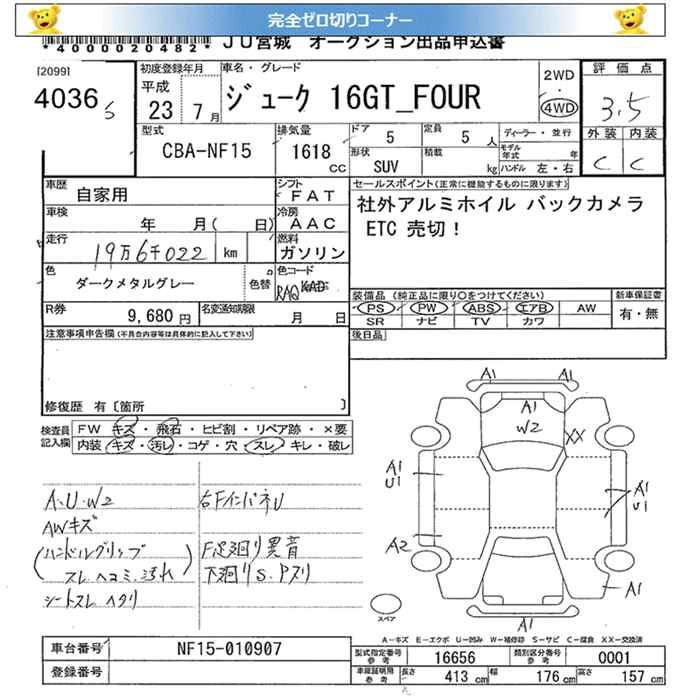 完全ゼロ切りコーナー
*4000020482*
JU宮城 オークション出品申込書
[2099]
4036 S
初度登録年月
平成
23 7月
車名・グレード
ジューク 16GT_FOUR
2WD
・
4WD
評価点
3.5
外装 内装
C C
型式
CBA-NF15
排気量
1618 CC
ドア 5
定員 5 人
形状
SUV
積載 kg
ディーラー・並行
モデル年式 年
ハンドル 左・右
車歴
自家用
シフト
FAT
車検
年 月( 日)
冷房
AAC
走行
19万6千022 km
燃料
ガソリン
色
ダークメタルグレー
色替
色コード
RAQ KAD
R券
9,680 円
名変通知期限
月 日
セールスポイント(正常に機能するものに限ります)
社外アルミホイル バックカメラ
ETC 売切!
装備品(純正品に限り○をつけてください)
PS PW ABS エアB AW
SR ナビ TV カワ
新車保証書
有・無
後日品
注意事項申告欄(不具合内容等は具体的に記入して下さい)
修復歴 有〔箇所 〕
検査員記入欄
FW キズ・飛石・ヒビ割・リペア跡・×要
内装 キズ・汚レ・コゲ・穴・スレ・キレ・破レ
A.U.W2
AWキズ
(ハンドルグリップ
スレ.ヘコミ.汚れ)
シートスレ ヘタリ
右FインパネU
F足廻り異音
下廻りS.Pスリ
A1 A1
A1
W2
XX
A1
U1
A1
U1
A2
A1
A1
スペア
A-キズ E-エクボ U-凹み W-補修跡 S-サビ C-腐食 XX-交換済
車台番号 NF15-010907
登録番号
型式指定番号 参考 16656
類別区分番号 参考 0001
車庫証明用 参考 長さ 413 cm 幅 176 cm 高さ 157 cm